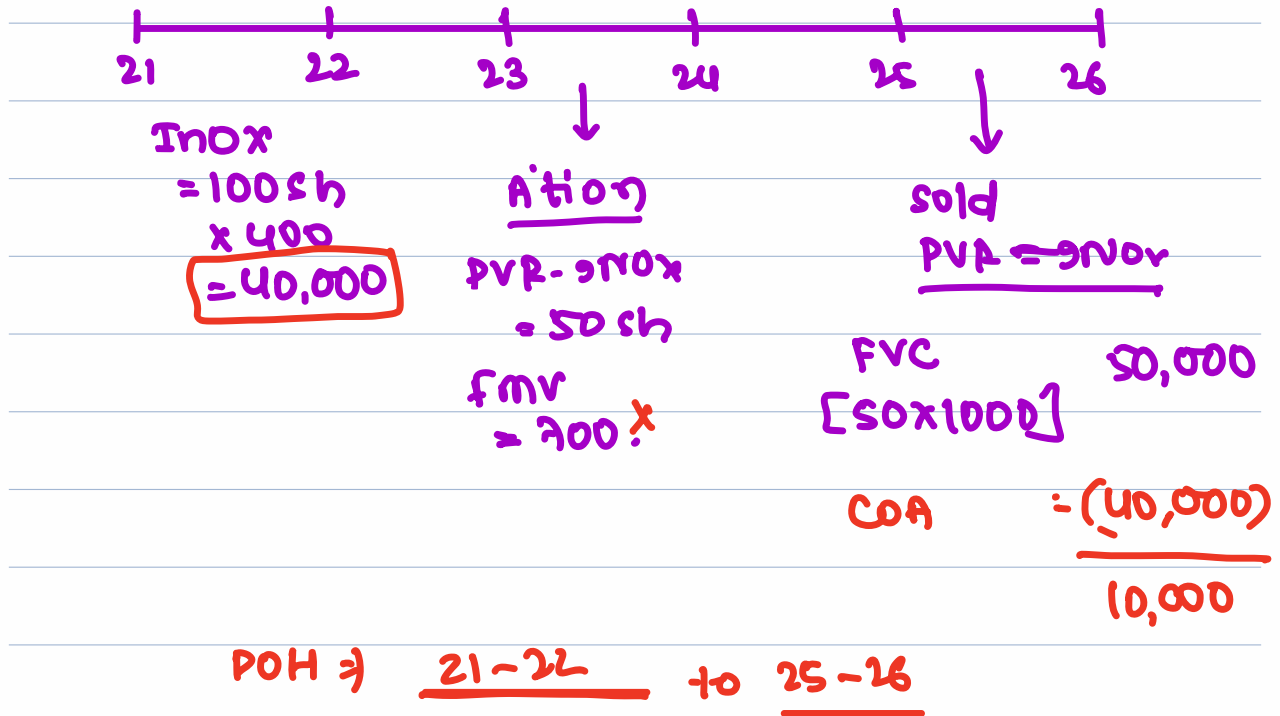 21 22 23 24 25 26
Inox
= 100 sh
x 400
= 40,000
A'tion
PVR - INOx
= 50 sh
fmv
= 700. x
Sold
PVR - INOx
FVC 50,000
[50x1000]
COA :- (40,000)
10,000
POH => 21-22 to 25-26